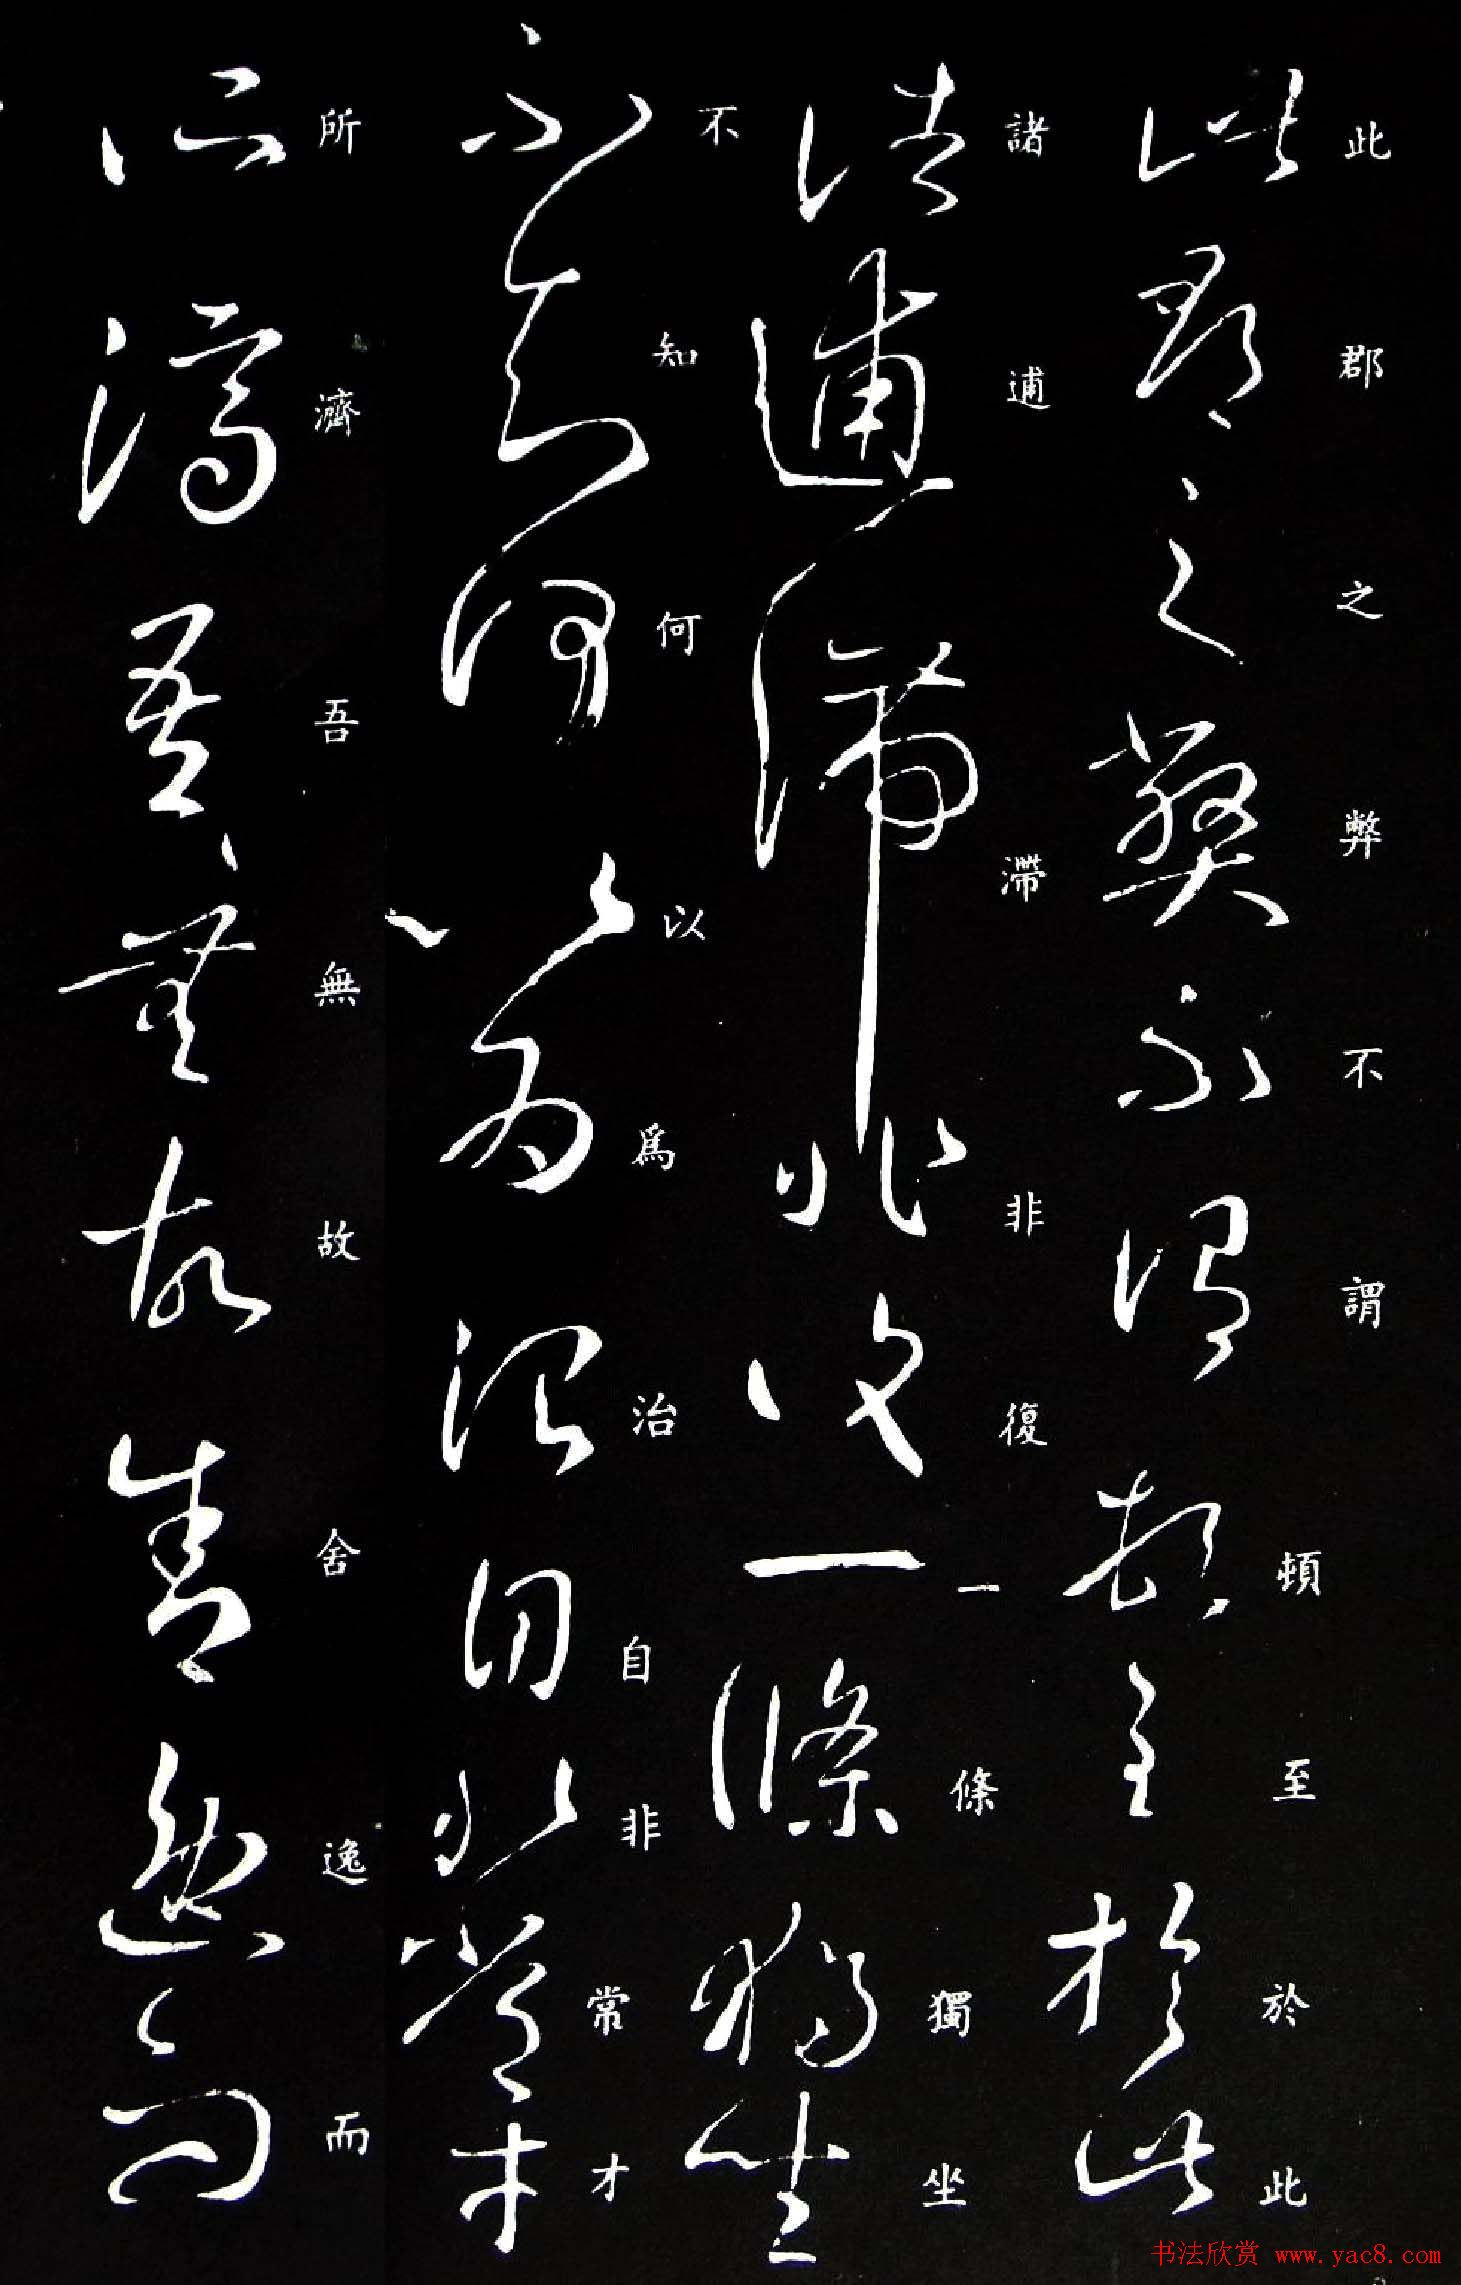 此郡之弊不謂頓至於此
諸逋滯非復一條獨坐
不知何以為治自非常才
所濟吾無故舍逸而
书法欣赏 www.yac8.com